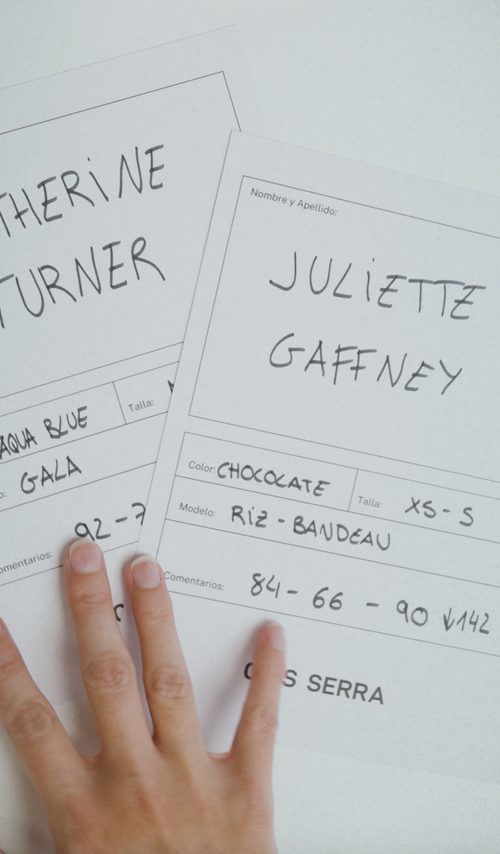 TURNER
AQUA BLUE
Talla:
GALA
92-7
Nombre y Apellido:
JULIETTE
GAFFNEY
Color: CHOCOLATE Talla: XS-S
Modelo: RIZ-BANDEAU
Comentarios: 84-66-90 ↓142
SERRA